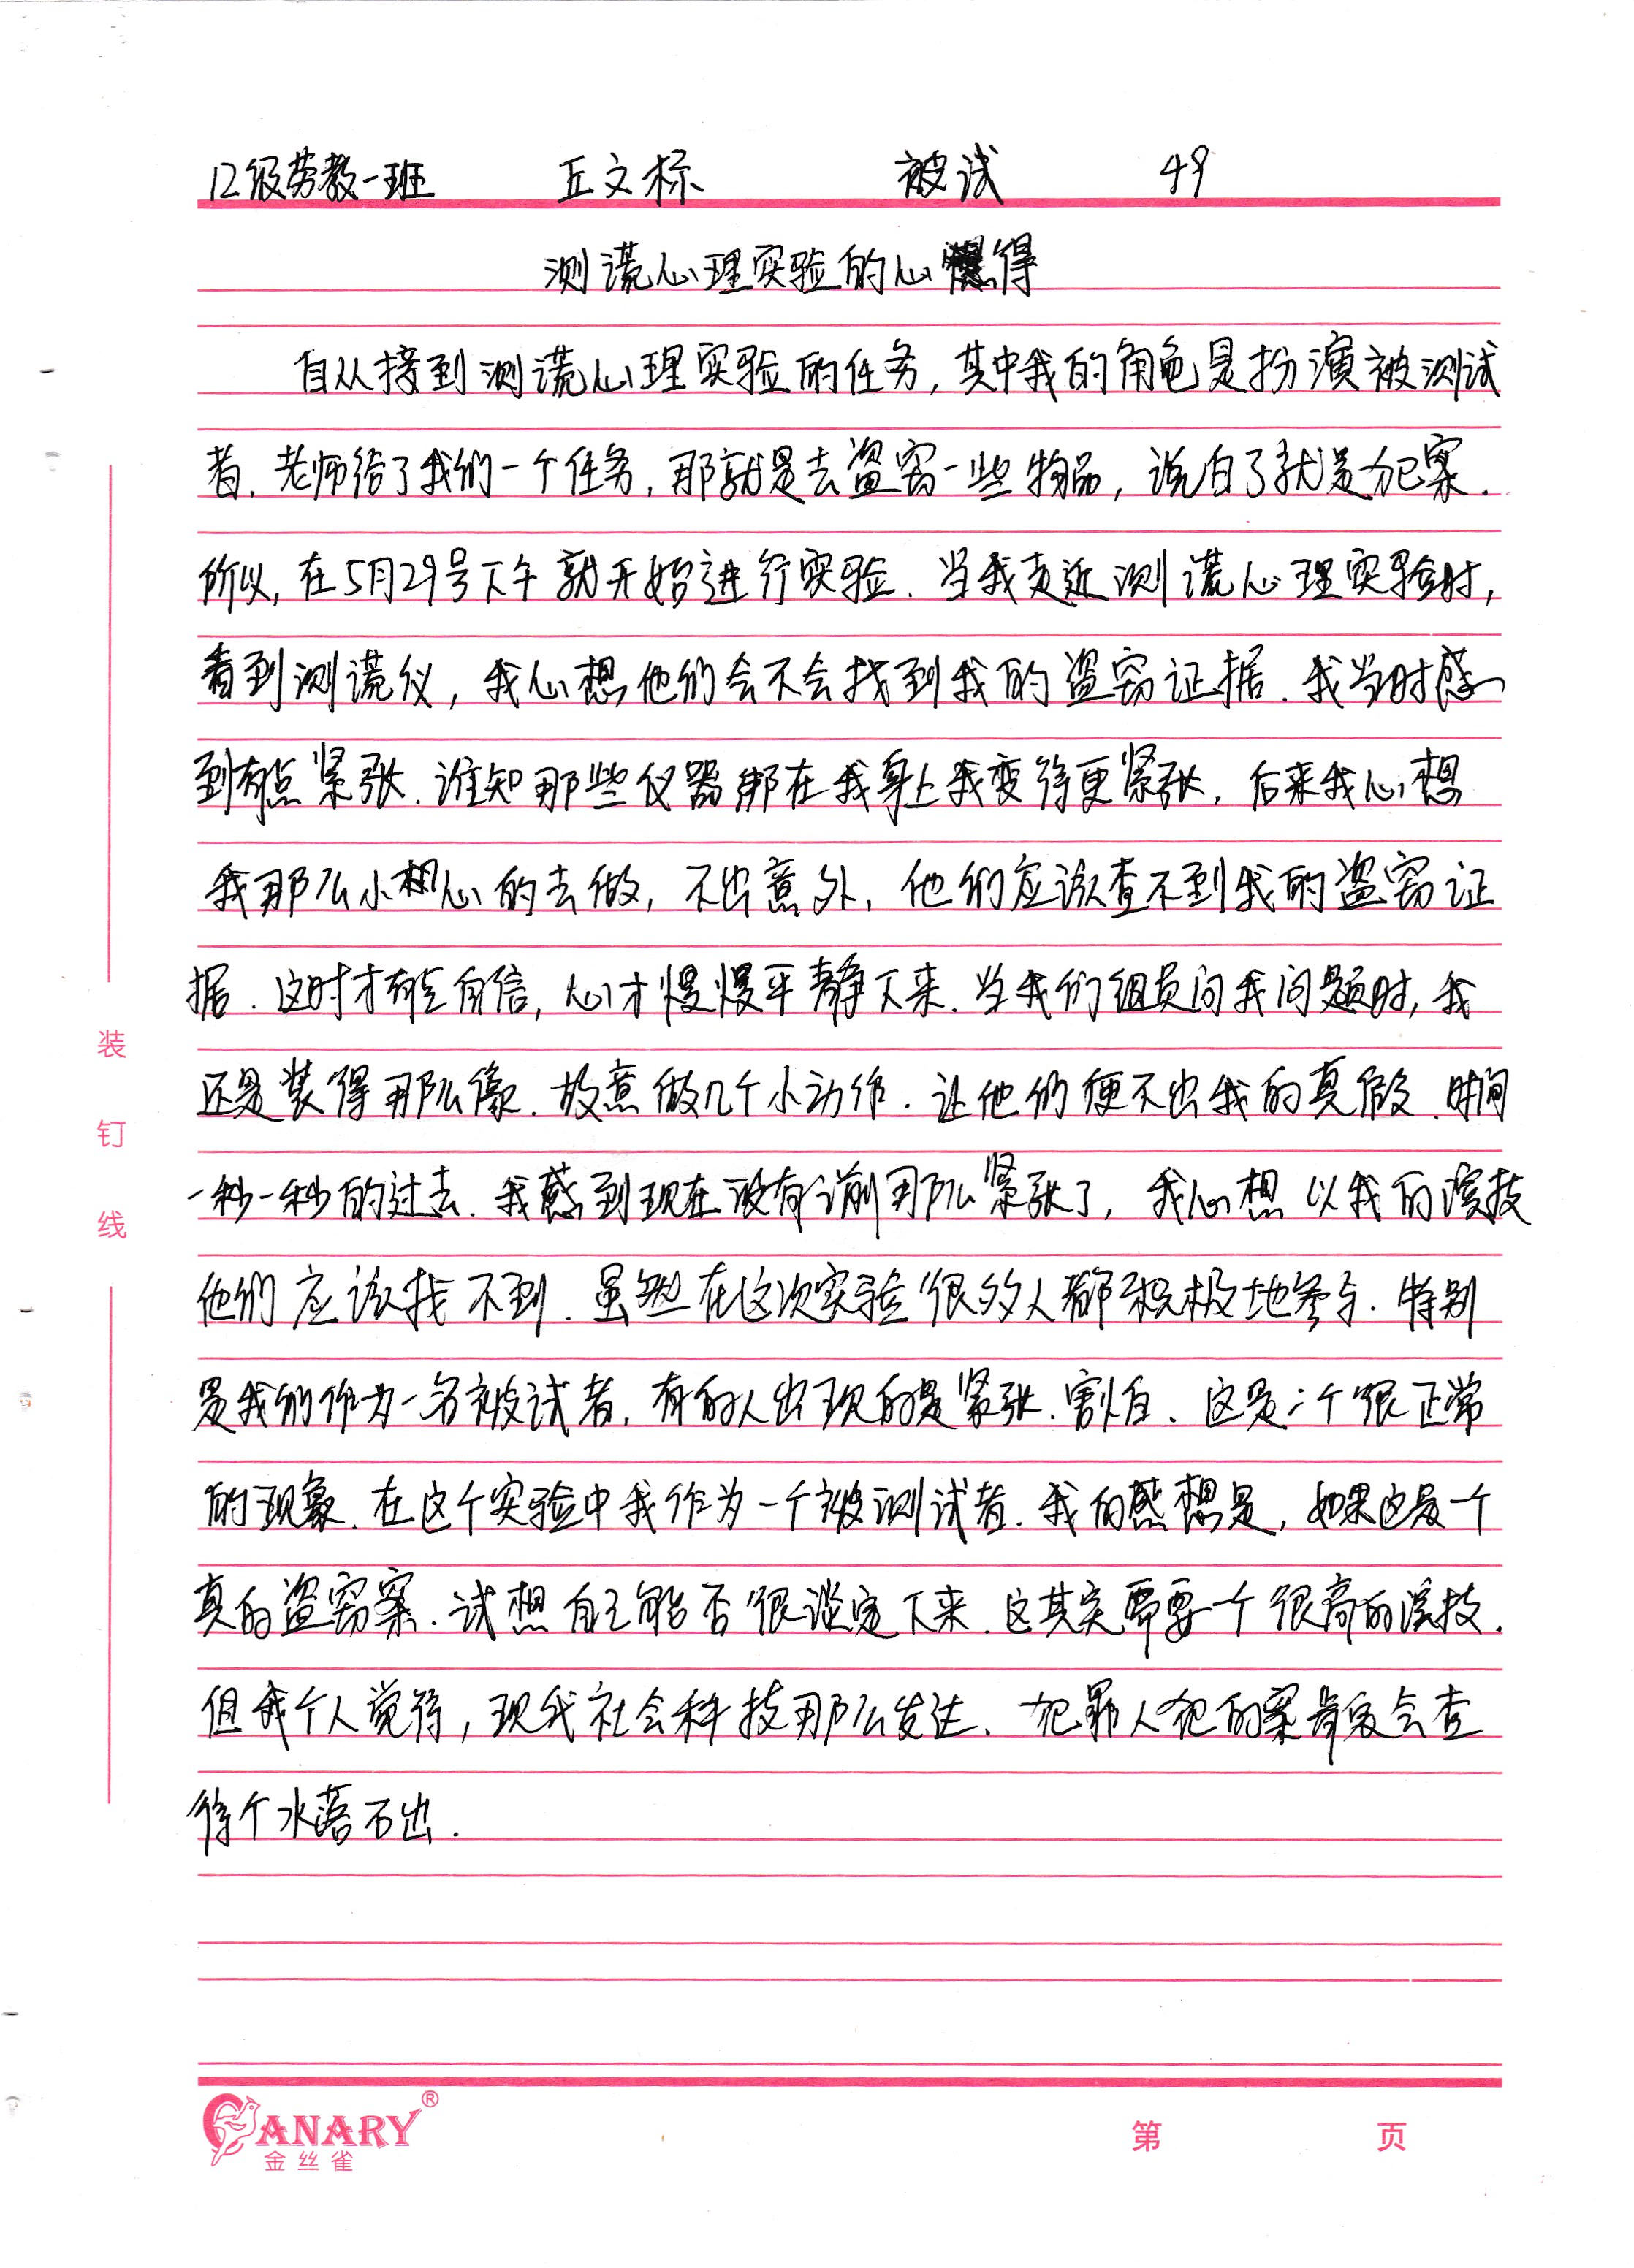 12级劳教一班 丘文标 被试 49
测谎心理实验的心得
自从接到测谎心理实验的任务,其中我的角色是扮演被测试
者.老师给了我们一个任务,那就是去盗窃一些物品,说白了就是犯案.
所以,在5月29号下午就开始进行实验.当我走近测谎心理实验时,
看到测谎仪,我心想他们会不会找到我的盗窃证据.我当时感
到有点紧张.谁知那些仪器绑在我身上我变得更紧张,后来我心想
我那么小心的去做,不出意外,他们应该查不到我的盗窃证
据.这时才有点自信,心才慢慢平静下来.当我们组员问我问题时,我
还是装得那么像.故意做几个小动作.让他们便不出我的真假.时间
一秒一秒的过去.我感到现在没有前那么紧张了,我心想以我的演技
他们应该找不到.虽然在这次实验很多人都积极地参与.特别
是我们作为一名被试者,有的人出现的是紧张、.这是个很正常
的现象.在这个实验中我作为一个被测试者.我的感想是,如果这是一个
真的盗窃案.试想自己能否很淡定下来.这其实需要一个很高的演技.
但我个人觉得,现代社会科技那么发达、犯罪人犯的案肯定会查
得个水落石出.
装
钉
线
CANARY®
金丝雀
第 页